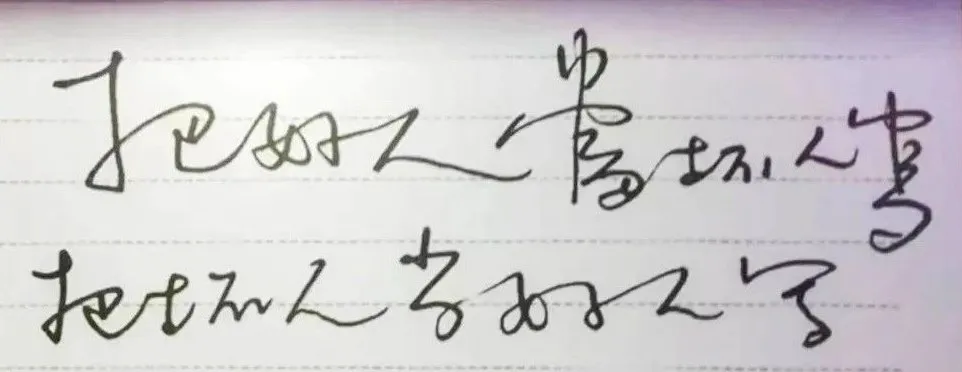 把好人當坏人寫
把坏人当好人写